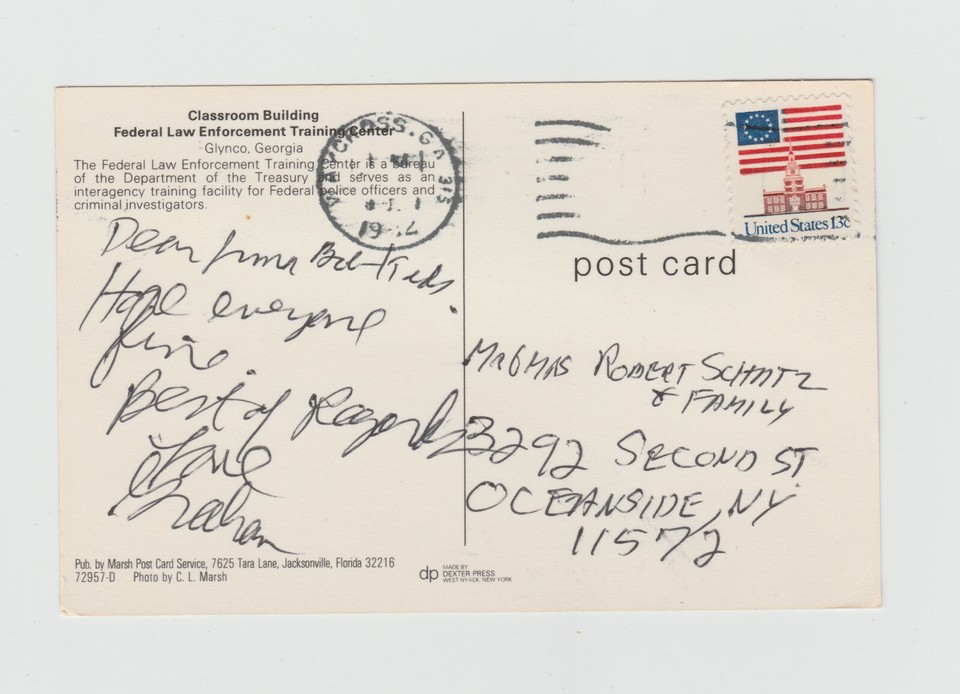 Classroom Building
Federal Law Enforcement Training Center
Glynco, Georgia
The Federal Law Enforcement Training Center is a bureau
of the Department of the Treasury and serves as an
interagency training facility for Federal police officers and
criminal investigators.
WAYCROSS, GA 315
United States 13c
post card
Dear Bob + Kids.
Hope everyone
fine.
Best of Regards
Love
Graham
Mr & Mrs Robert Schatz
& Family
3292 Second St
Oceanside, NY
11572
Pub. by Marsh Post Card Service, 7625 Tara Lane, Jacksonville, Florida 32216
72957-D Photo by C. L. Marsh
dp MADE BY
DEXTER PRESS
WEST NYACK, NEW YORK